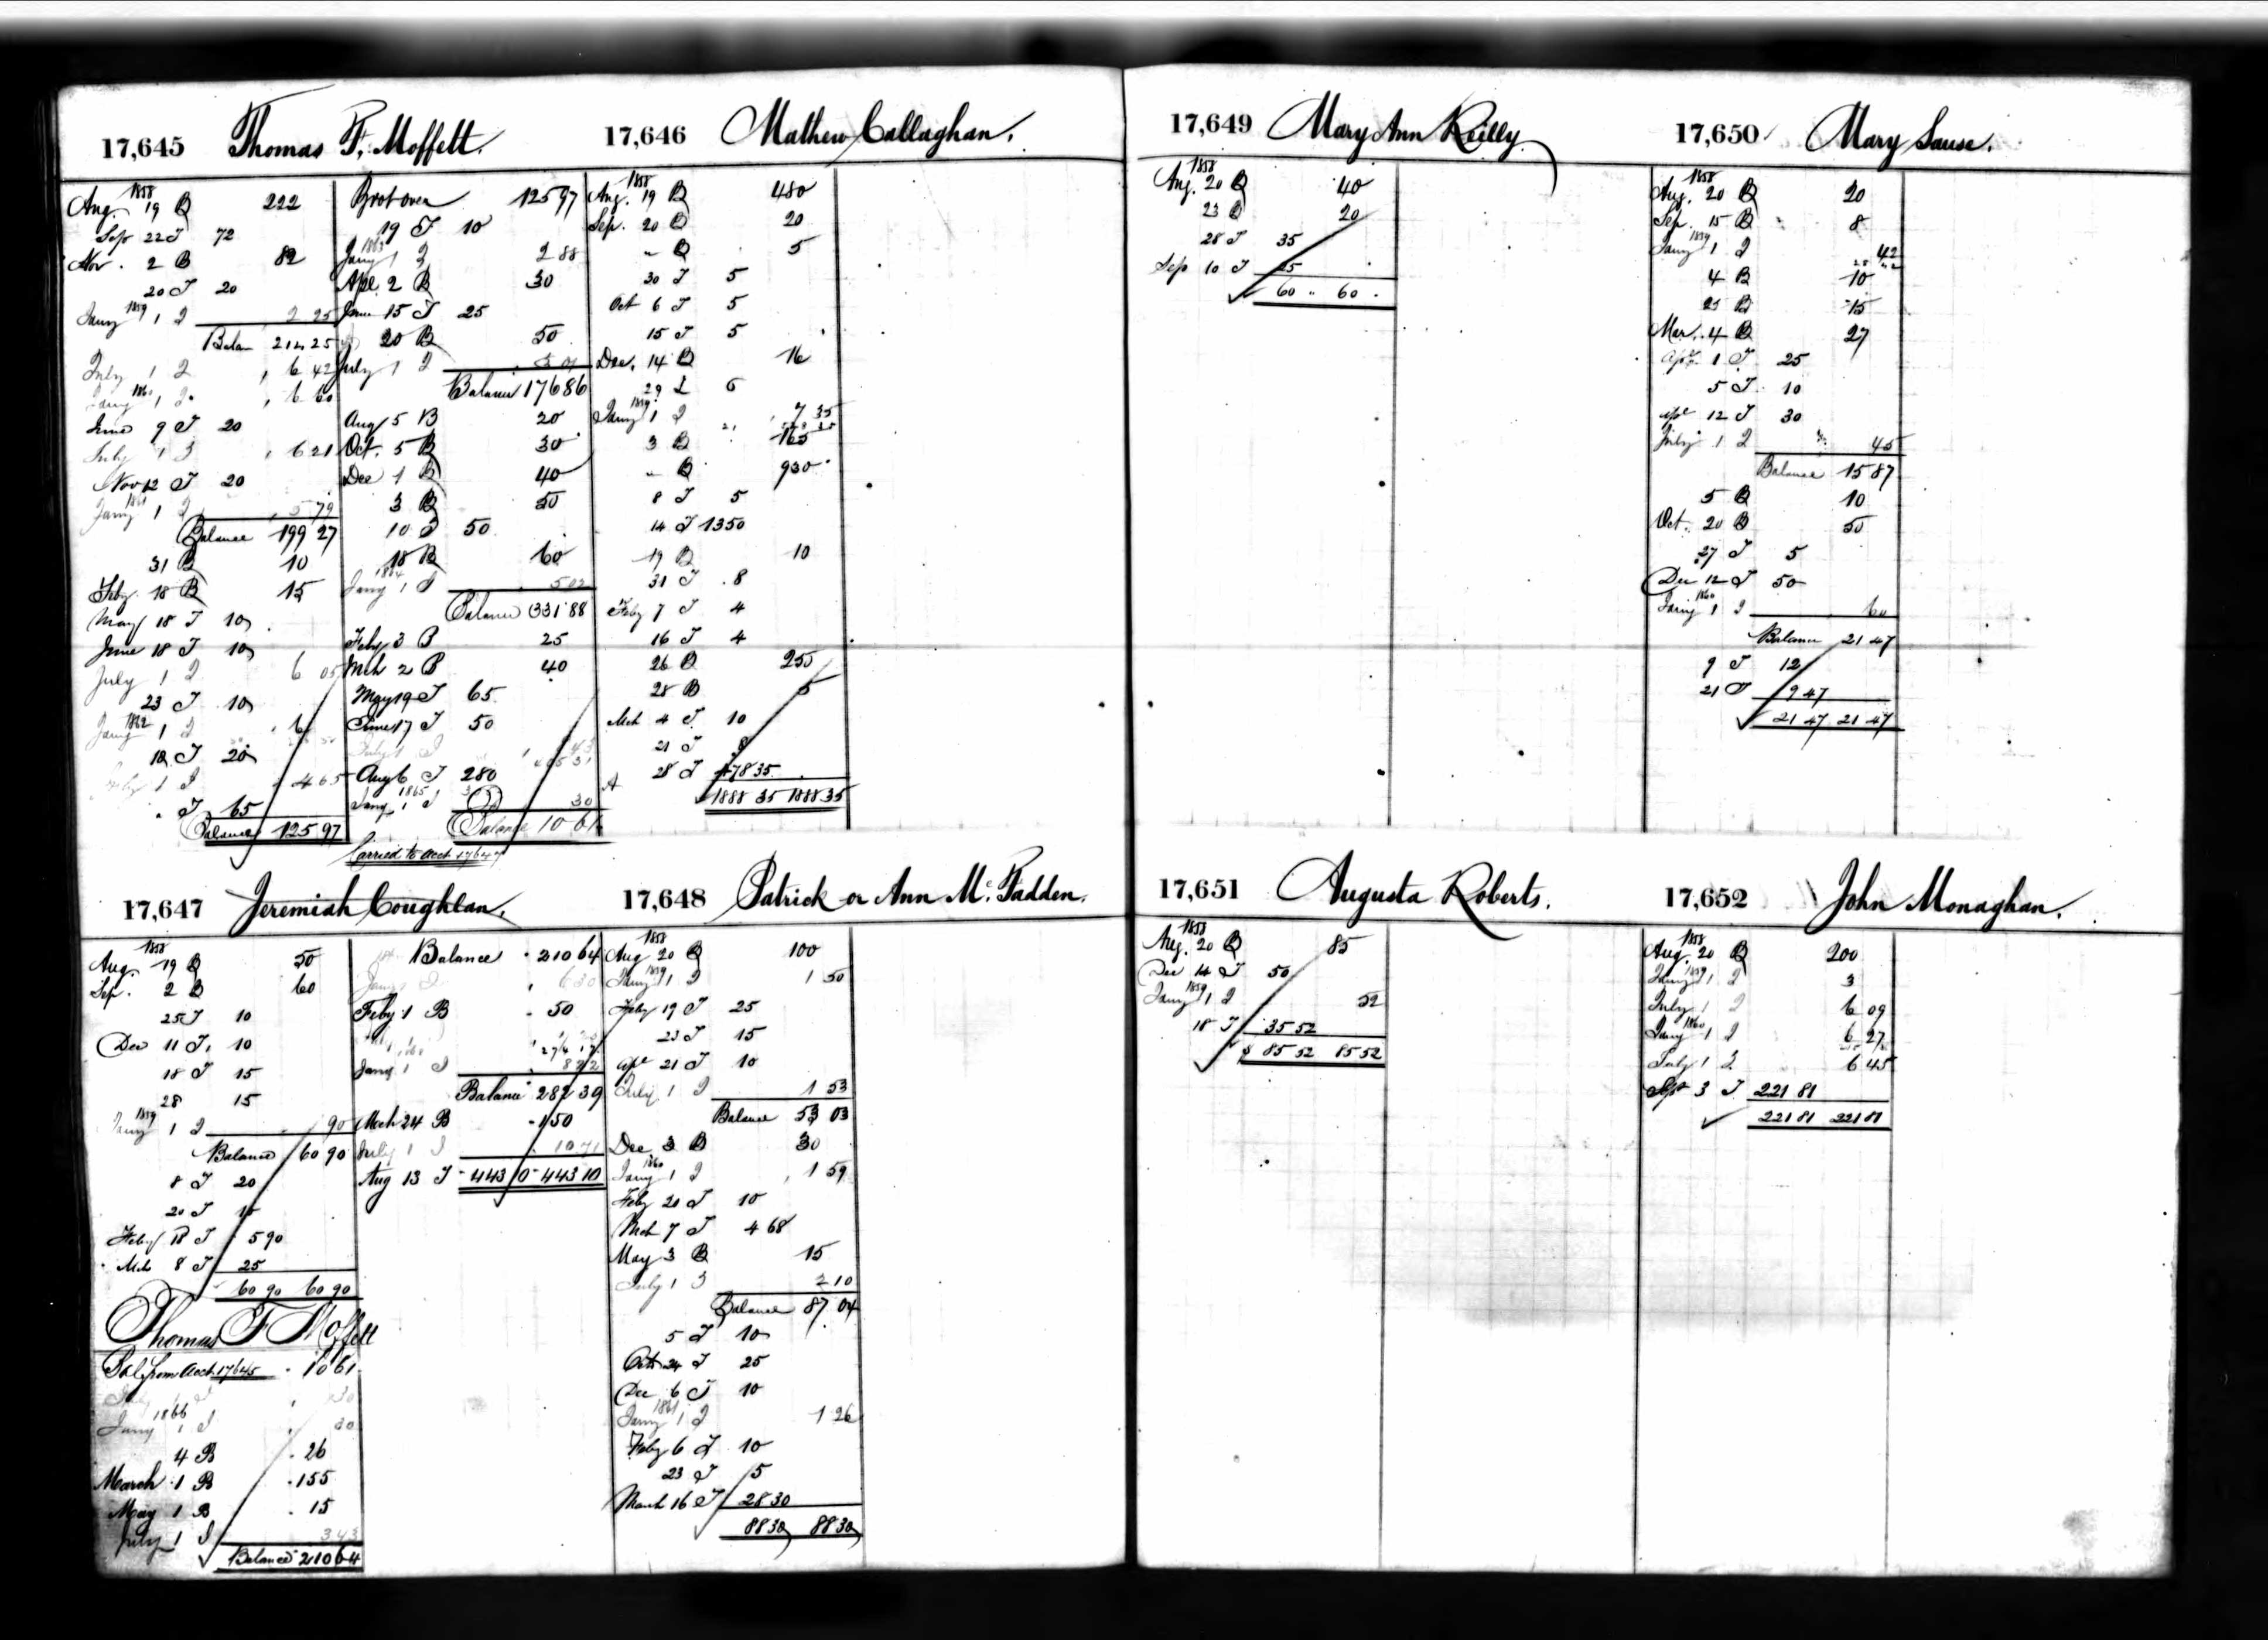 17,645 Thomas F. Moffett.
1858
Aug. 19 B 222
Sep 22 T 72
Nov. 2 B 82
20 T 20
1859
Jany 1 I 2 25
Balan 214 25
July 1 I 6 42
1860
Jany 1 I 6 60
June 9 T 20
July 1 I 6 21
Nov 12 T 20
1861
Jany 1 I 5 79
Balance 199 27
31 B 10
Feby 18 B 15
May 18 T 10
June 18 T 10
July 1 I 6 05
23 T 10
1862
Jany 1 I 6
18 T 20
July 1 I 4 65
" T 65
Balance 125 97
Brot over 125 97
19 T 10
1863
Jany 1 I 2 88
Apl 2 B 30
June 15 T 25
20 B 50
July 1 I 3 01
Balance 176 86
Aug 5 B 20
Oct. 5 B 30
Dec 1 B 40
3 B 50
10 T 50
18 B 60
1864
Jany 1 I 5 02
Balance 331 88
Feby 3 B 25
Mch 2 B 40
May 19 T 65
June 17 T 50
July 1 I
Aug 6 T 280
1865
Jany 1 I 30
Balance 10 61
Carried to acct 17647
17,646 Mathew Callaghan.
1858
Aug. 19 B 480
Sep. 20 B 20
" B 5
30 T 5
Oct 6 T 5
15 T 5
Dec. 14 B 16
29 T 6
1859
Jany 1 I 7 35
3 B 165
" B 930
8 T 5
14 T 1350
19 B 10
31 T 8
Feby 7 T 4
16 T 4
26 B 250
28 B 5
Mch 4 T 10
21 T 8
28 T 478 35
1888 35 1888 35
17,647 Jeremiah Coughlan.
1858
Aug. 19 B 50
Sep. 2 B 60
25 T 10
Dec 11 T 10
18 T 15
28 15
1859
Jany 1 I 90
Balance 60 90
8 T 20
20 T 10
Feby 18 T 5 90
Mch 8 T 25
60 90 60 90
Thomas F Moffett
Bal from acct. 17645 10 61
July 1 I 30
1866
Jany 1 I 30
4 B 26
March 1 B 155
May 1 B 15
July 1 I 3 43
Balance 210 64
Balance 210 64
Jany 1 I 6 30
Feby 1 B 50
Jany 1 I 8 22
Balance 282 39
Mch 24 B 150
July 1 I 10 71
Aug 13 T 443 10 443 10
17,648 Patrick or Ann Mc. Fadden.
1858
Aug 20 B 100
1859
Jany 1 I 1 50
Feby 19 T 25
23 T 15
Apl 21 T 10
July 1 I 1 53
Balance 53 03
Dec 3 B 30
1860
Jany 1 I 1 59
Feby 20 T 10
Mch 7 T 4 68
May 3 B 15
July 1 I 2 10
Balance 87 04
5 T 10
Oct 24 T 25
Dec 6 T 10
1861
Jany 1 I 1 26
Feby 6 T 10
23 T 5
March 16 T 28 30
88 30 88 30
17,649 Mary Ann Reilly
1858
Aug. 20 B 40
23 B 20
28 T 35
Sep 10 T 25
60 " 60 "
17,650 Mary Sause.
1858
Aug. 20 B 20
Sep. 15 B 8
1859
Jany 1 I 42
4 B 10
25 B 15
Mar. 4 B 27
Apl. 1 T 25
5 T 10
Apl 12 T 30
July 1 I 45
Balance 15 87
5 B 10
Oct. 20 B 50
27 T 5
Dec 12 T 50
1860
Jany 1 I 60
Balance 21 47
9 T 12
21 T 9 47
21 47 21 47
17,651 Augusta Roberts.
1858
Aug. 20 B 85
Dec 14 T 50
1859
Jany 1 I 52
18 T 35 52
$ 85 52 85 52
17,652 John Monaghan.
1858
Aug. 20 B 200
1859
Jany 1 I 3
July 1 I 6 09
1860
Jany 1 I 6 27
July 1 I 6 45
Sep 3 T 221 81
221 81 221 81